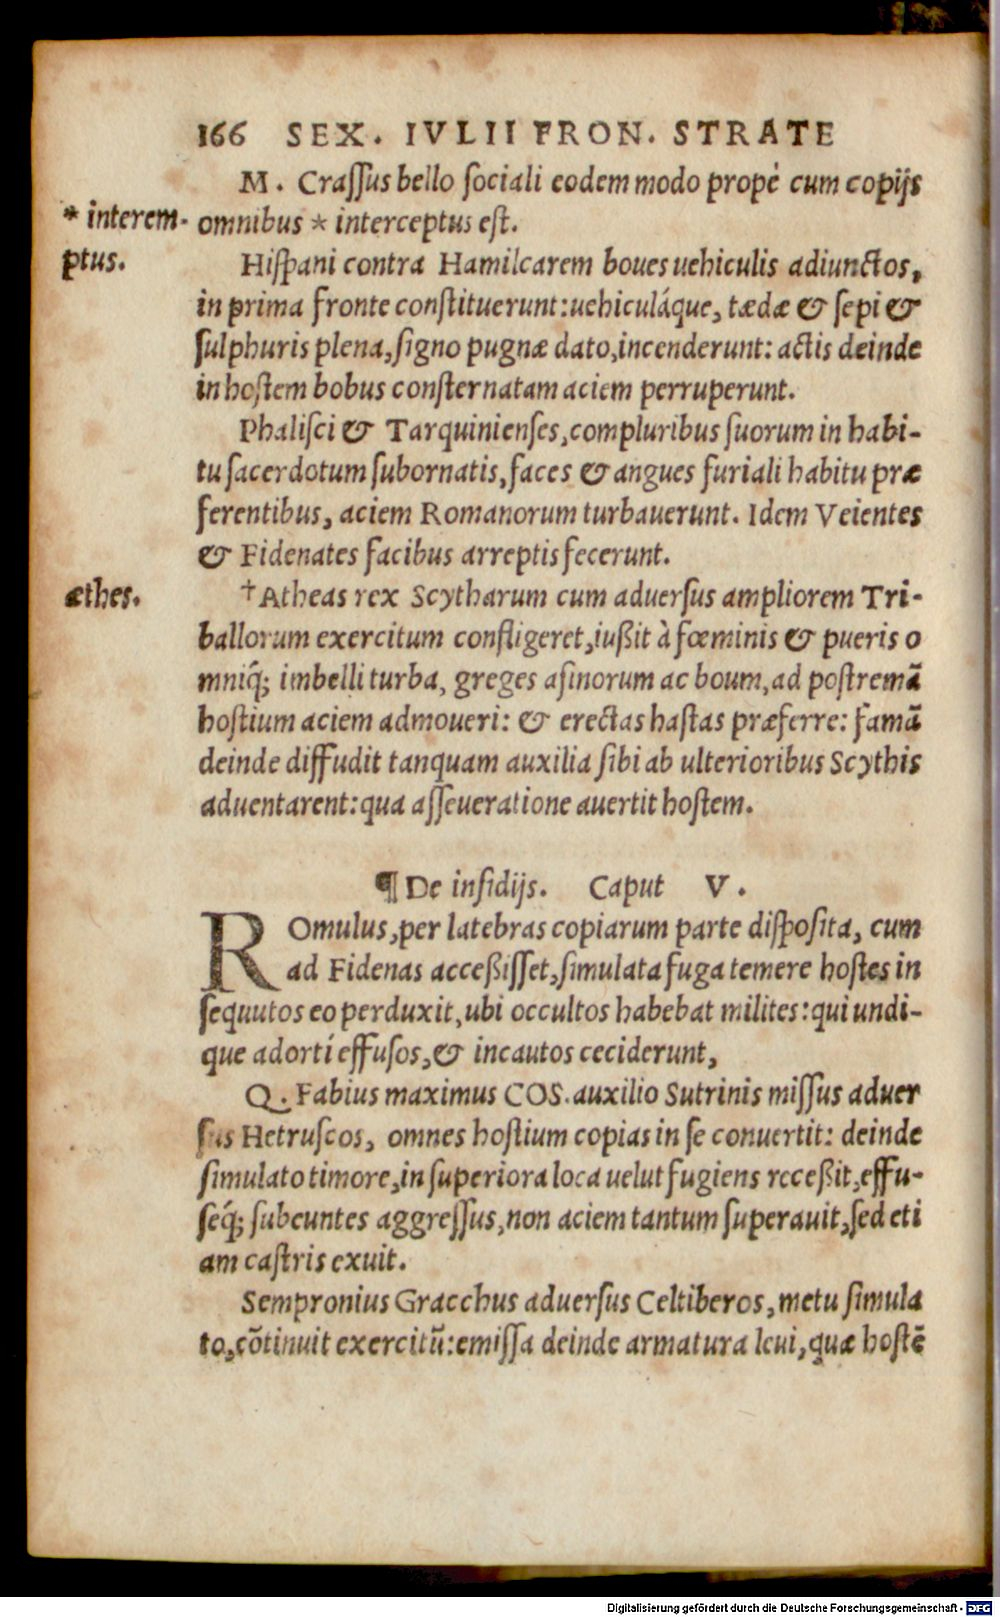 166 SEX. IVLII FRON. STRATE
M. Craſſus bello ſociali eodem modo propè cum copijs
* interem- omnibus * interceptus eſt.
ptus. Hiſpani contra Hamilcarem boues uehiculis adiunctos,
in prima fronte conſtituerunt: uehiculáque, tædæ & ſepi &
ſulphuris plena, ſigno pugnæ dato, incenderunt: actis deinde
in hoſtem bobus conſternatam aciem perruperunt.
Phaliſci & Tarquinienſes, compluribus ſuorum in habi-
tu ſacerdotum ſubornatis, faces & angues furiali habitu præ
ferentibus, aciem Romanorum turbauerunt. Idem Veientes
& Fidenates facibus arreptis fecerunt.
æthes. †Atheas rex Scytharum cum aduerſus ampliorem Tri-
ballorum exercitum confligeret, iußit à fœminis & pueris o
mniq́; imbelli turba, greges aſinorum ac boum, ad poſtremā
hoſtium aciem admoueri: & erectas haſtas præferre: famā
deinde diffudit tanquam auxilia ſibi ab ulterioribus Scythis
aduentarent: qua aſſeueratione auertit hoſtem.
¶ De inſidijs. Caput V.
ROmulus, per latebras copiarum parte diſpoſita, cum
ad Fidenas acceßiſſet, ſimulata fuga temere hoſtes in
ſequutos eo perduxit, ubi occultos habebat milites: qui undi-
que adorti effuſos, & incautos ceciderunt,
Q. Fabius maximus COS. auxilio Sutrinis miſſus aduer
ſus Hetruſcos, omnes hoſtium copias in ſe conuertit: deinde
ſimulato timore, in ſuperiora loca uelut fugiens receßit, effu-
ſeq́; ſubeuntes aggreſſus, non aciem tantum ſuperauit, ſed eti
am caſtris exuit.
Sempronius Gracchus aduerſus Celtiberos, metu ſimula
to, cōtinuit exercitū: emiſſa deinde armatura leui, quæ hoſtē
Digitalisierung gefördert durch die Deutsche Forschungsgemeinschaft - DFG